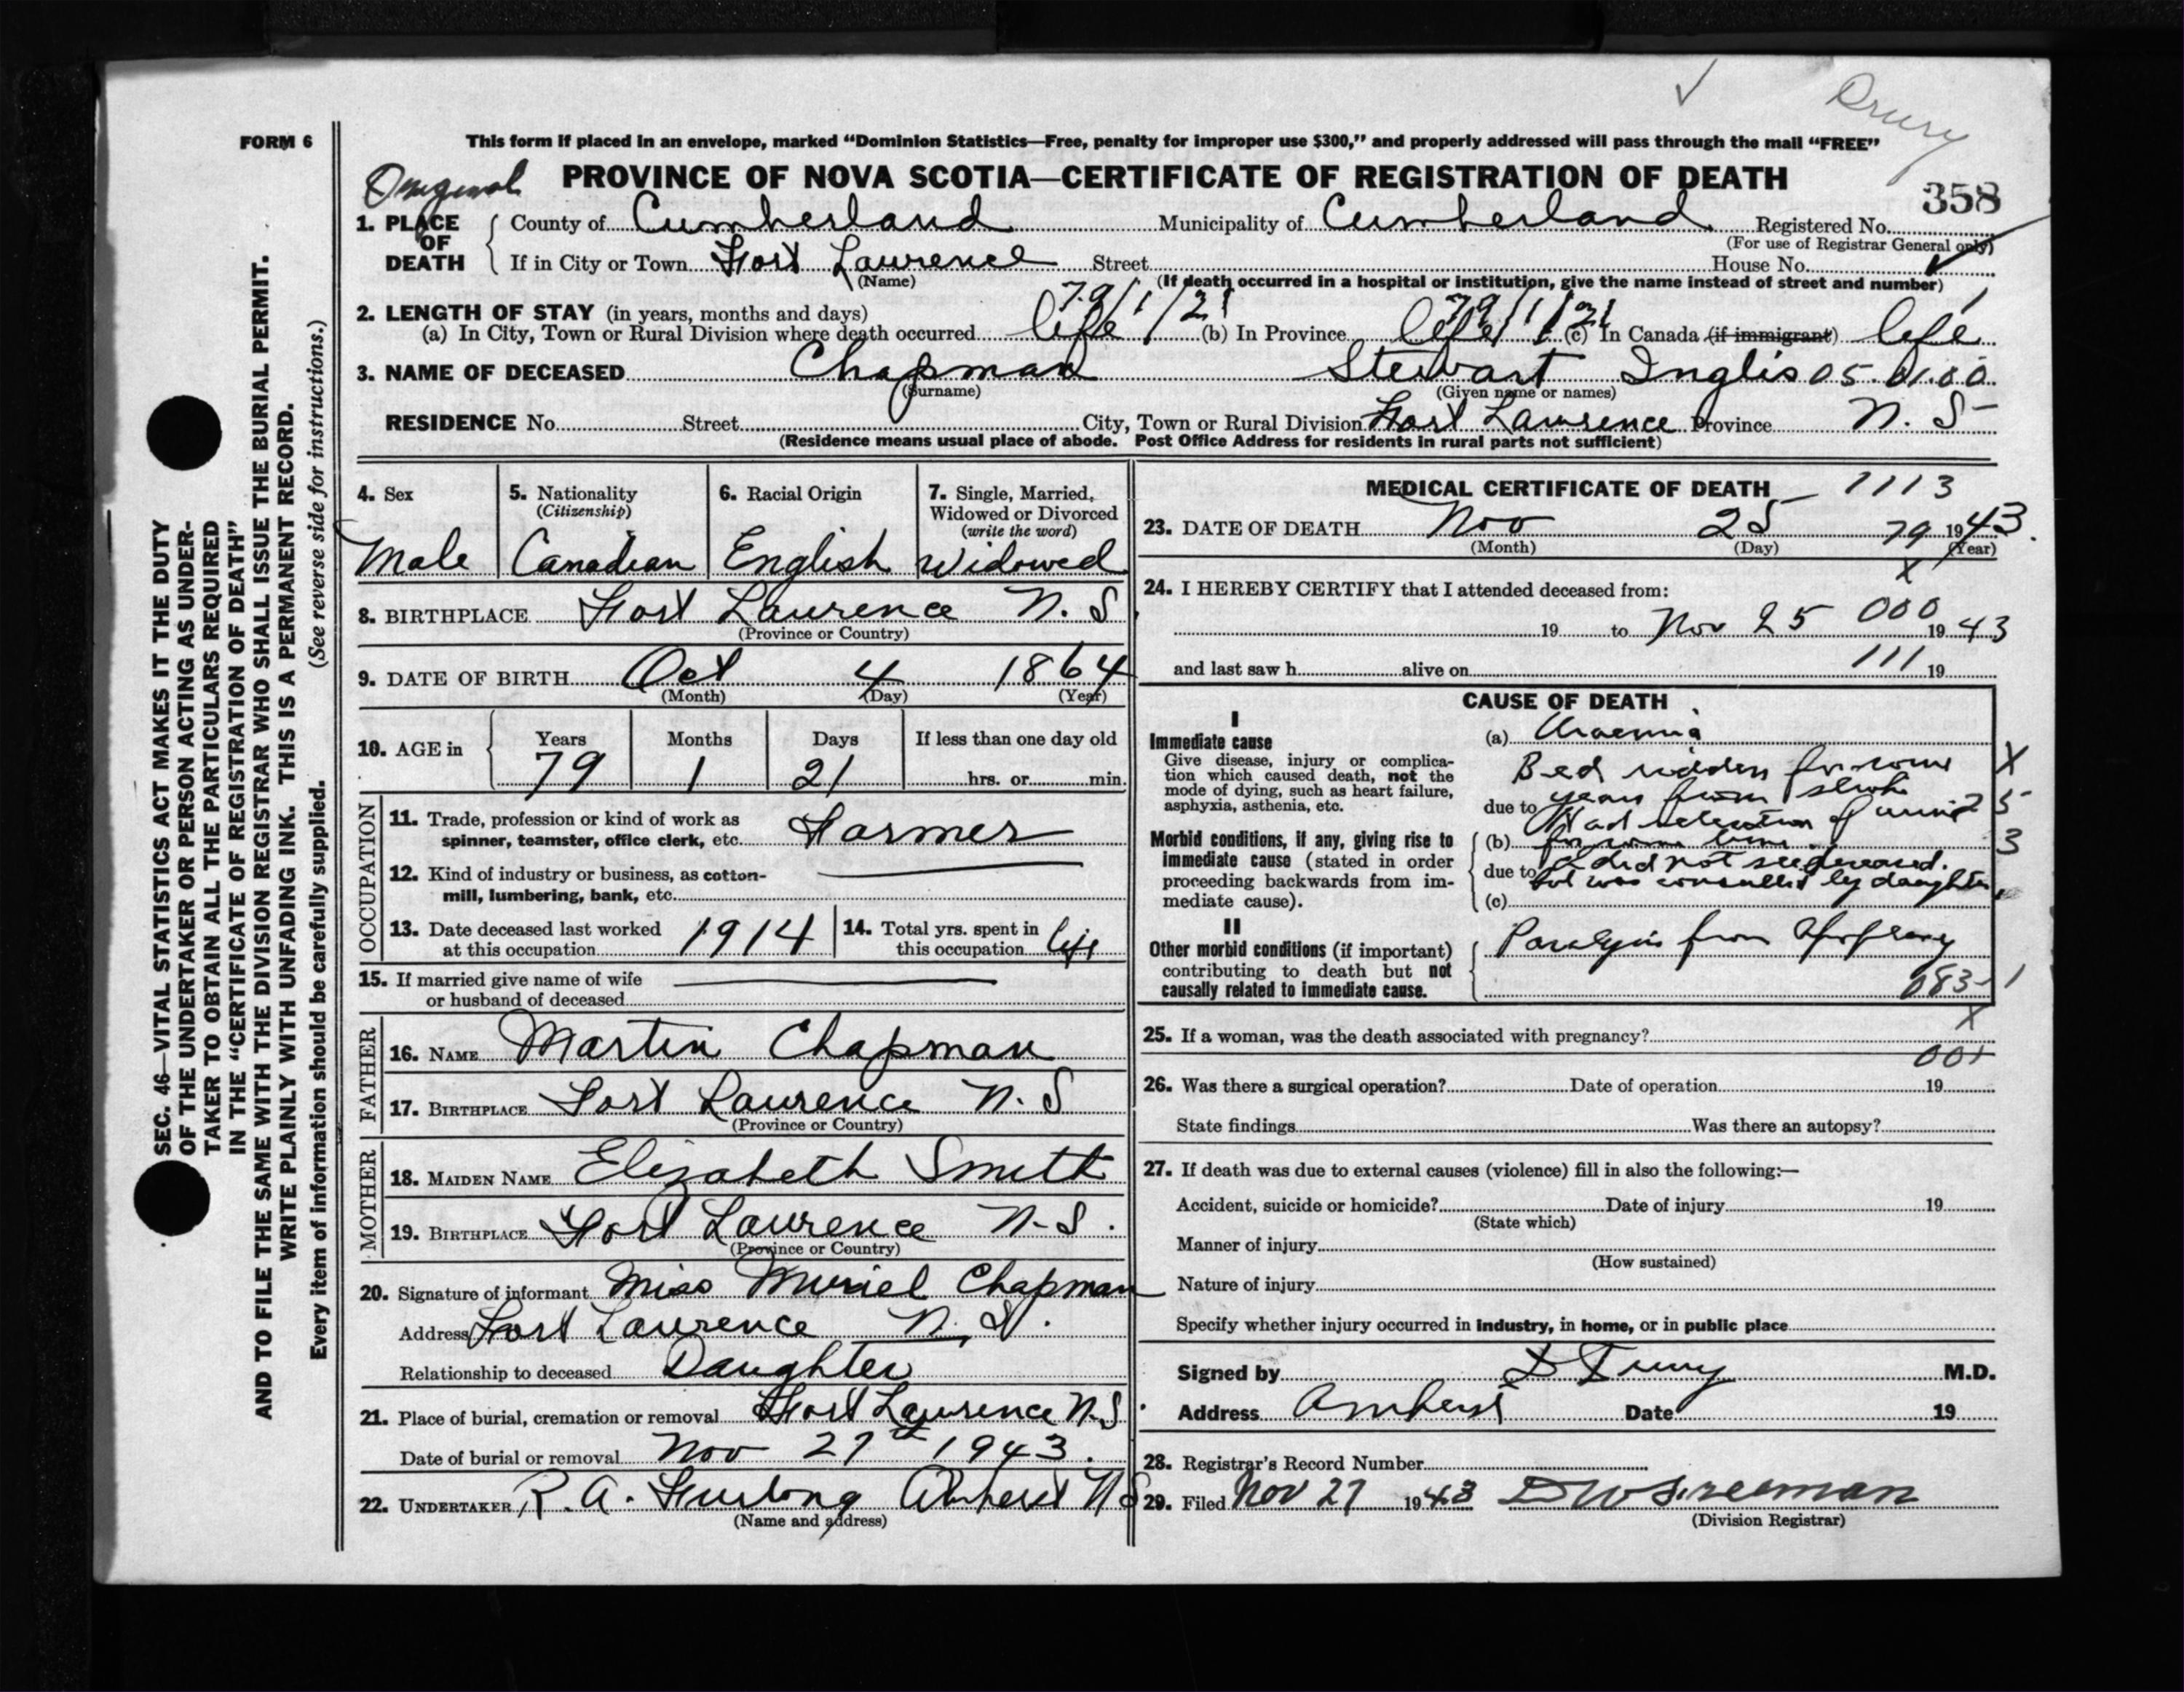 Drury
FORM 6
This form if placed in an envelope, marked “Dominion Statistics—Free, penalty for improper use $300,” and properly addressed will pass through the mail “FREE”
Original PROVINCE OF NOVA SCOTIA—CERTIFICATE OF REGISTRATION OF DEATH
358
1. PLACE OF DEATH County of Cumberland Municipality of Cumberland Registered No.
(For use of Registrar General only)
If in City or Town Fort Lawrence Street House No.
(Name) (If death occurred in a hospital or institution, give the name instead of street and number)
2. LENGTH OF STAY (in years, months and days) 79/1/21 79/1/21
(a) In City, Town or Rural Division where death occurred life (b) In Province life (c) In Canada (if immigrant) life
3. NAME OF DECEASED Chapman Stewart Inglis 05.01.00
(Surname) (Given name or names)
RESIDENCE No. Street City, Town or Rural Division Fort Lawrence Province N. S
(Residence means usual place of abode. Post Office Address for residents in rural parts not sufficient)
4. Sex
Male
5. Nationality
(Citizenship)
Canadian
6. Racial Origin
English
7. Single, Married, Widowed or Divorced
(write the word)
Widowed
8. BIRTHPLACE Fort Lawrence N. S.
(Province or Country)
9. DATE OF BIRTH Oct 4 1864
(Month) (Day) (Year)
10. AGE in Years Months Days If less than one day old
79 1 21 hrs. or min.
OCCUPATION
11. Trade, profession or kind of work as
spinner, teamster, office clerk, etc. Farmer
12. Kind of industry or business, as cotton-
mill, lumbering, bank, etc.
13. Date deceased last worked
at this occupation 1914
14. Total yrs. spent in
this occupation life
15. If married give name of wife
or husband of deceased
FATHER
16. NAME Martin Chapman
17. BIRTHPLACE Fort Lawrence N. S
(Province or Country)
MOTHER
18. MAIDEN NAME Elizabeth Smith
19. BIRTHPLACE Fort Lawrence N-S.
(Province or Country)
20. Signature of informant Miss Muriel Chapman
Address Fort Lawrence N. S.
Relationship to deceased Daughter
21. Place of burial, cremation or removal Fort Lawrence N.S.
Date of burial or removal Nov 27th 1943.
22. UNDERTAKER R. A. Furlong Amherst N S
(Name and address)
MEDICAL CERTIFICATE OF DEATH 1113
23. DATE OF DEATH Nov 25 79 1943.
(Month) (Day) (Year)
24. I HEREBY CERTIFY that I attended deceased from: X
19 to Nov 25 000 1943
and last saw h alive on 111 19
CAUSE OF DEATH
I
Immediate cause
Give disease, injury or complica-
tion which caused death, not the
mode of dying, such as heart failure,
asphyxia, asthenia, etc.
(a) Uraemia
Bed ridden for some X
due to years from stroke
Had retention of urine 25
Morbid conditions, if any, giving rise to
immediate cause (stated in order
proceeding backwards from im-
mediate cause).
(b) for some time. 3
due to I did not see deceased.
but was consulted by daughter
(c)
II
Other morbid conditions (if important)
contributing to death but not
causally related to immediate cause.
Paralysis from Apoplexy
083-1
25. If a woman, was the death associated with pregnancy? X
26. Was there a surgical operation? Date of operation 19
State findings Was there an autopsy?
27. If death was due to external causes (violence) fill in also the following:—
Accident, suicide or homicide? Date of injury 19
(State which)
Manner of injury
(How sustained)
Nature of injury
Specify whether injury occurred in industry, in home, or in public place
Signed by M.D.
Address Amherst Date 19
28. Registrar's Record Number
29. Filed Nov 27 1943 D W Freeman
(Division Registrar)
SEC. 46—VITAL STATISTICS ACT MAKES IT THE DUTY
OF THE UNDERTAKER OR PERSON ACTING AS UNDER-
TAKER TO OBTAIN ALL THE PARTICULARS REQUIRED
IN THE “CERTIFICATE OF REGISTRATION OF DEATH”
AND TO FILE THE SAME WITH THE DIVISION REGISTRAR WHO SHALL ISSUE THE BURIAL PERMIT.
WRITE PLAINLY WITH UNFADING INK. THIS IS A PERMANENT RECORD.
Every item of information should be carefully supplied. (See reverse side for instructions.)